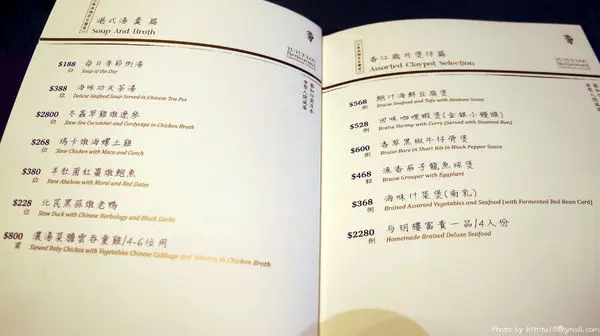 港式湯羹篇
Soup And Broth
$188 每日季節例湯
位 Soup of the Day
$388 海味功夫茶湯
位 Deluxe Seafood Soup Served in Chinese Tea Pot
$2800 冬蟲草雞燉遼參
位 Stew Sea Cucumber and Cordyceps in Chicken Broth
$268 瑪卡燉海螺土雞
位 Stew Chicken with Maca and Conch
$380 羊肚菌紅棗燉鮑魚
位 Stew Abalone with Morel and Red Dates
$228 北芪黑蒜燉老鴨
位 Stew Duck with Chinese Herbology and Black Garlic
$800 濃湯菜膽雲吞童雞/4-6位用
Stewed Baby Chicken with Vegetables Chinese Cabbage and Wontons in Chicken Broth
YU YUE LOU
Restaurant
香江歲月煲仔篇
Assorted Claypot Selection
$568 鮑汁海鮮豆腐煲
例 Braise Seafood and Tofu with Abalone Gravy
$528 回味咖喱蝦煲(金銀小饅頭)
例 Braise Shrimp with Curry (Served with Steamed Bun)
$600 香草黑椒牛仔骨煲
例 Braise Bone in Short Rib in Black Pepper Sauce
$468 漁香茄子龍魚球煲
例 Braise Grouper with Eggplant
$368 海味什菜煲(南乳)
例 Braised Assorted Vegetables and Seafood (with Fermented Red Bean Curd)
$2280 与玥樓富貴一品/4人份
例 Homemade Braised Deluxe Seafood
YU YUE LOU
Restaurant
Photo by kitotu12@gmail.com